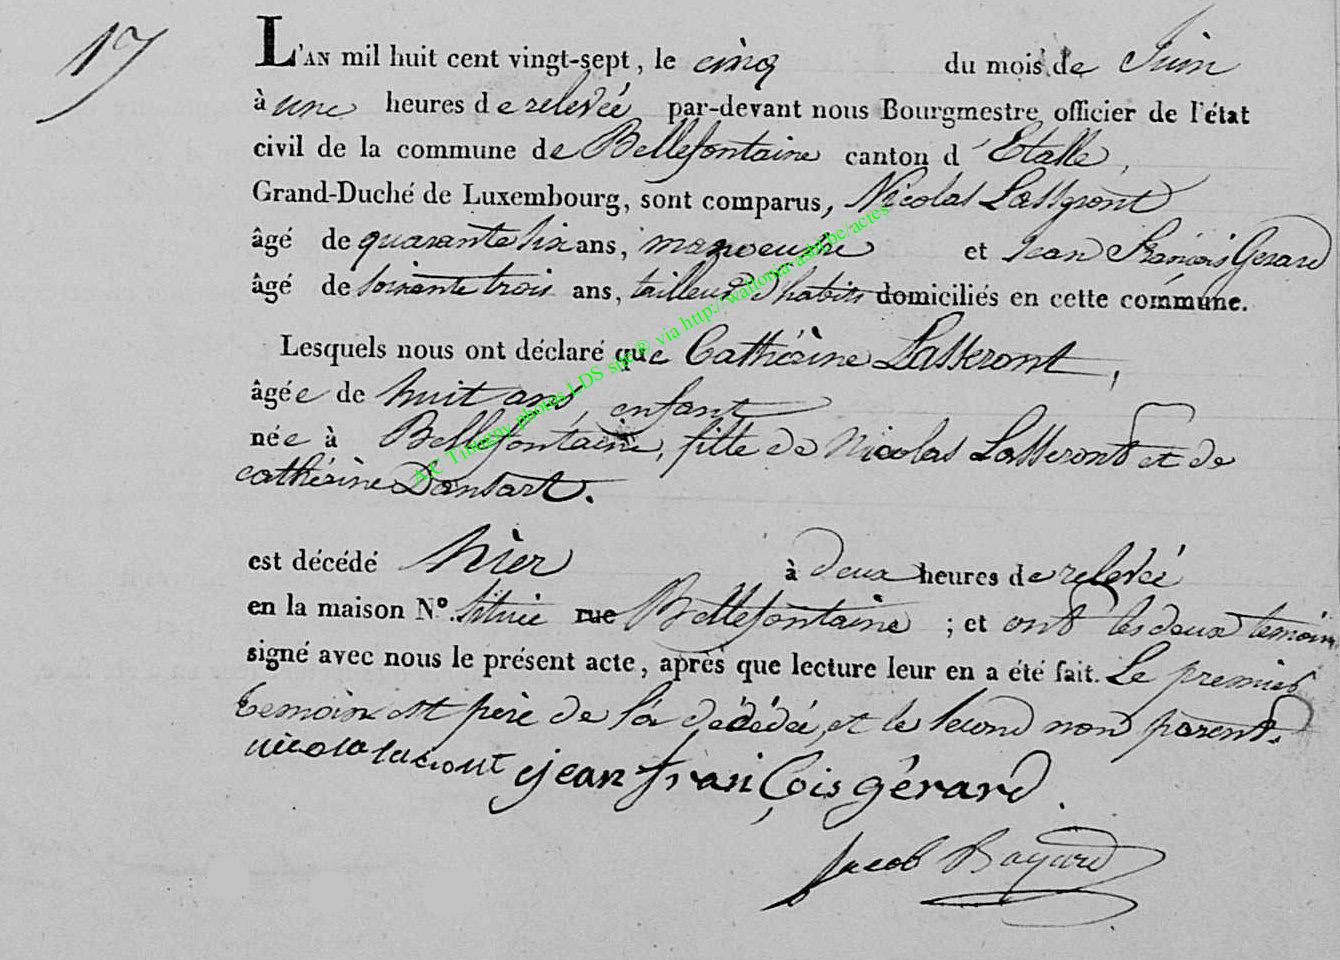 17
L'AN mil huit cent vingt-sept, le cinq du mois de Juin
à une heures de relevée par-devant nous Bourgmestre officier de l'état
civil de la commune de Bellefontaine canton d'Etalle,
Grand-Duché de Luxembourg, sont comparus, Nicolas Lasseront
âgé de quarante six ans, manoeuvre et Jean François Gerard
âgé de soixante trois ans, tailleur d'habits domiciliés en cette commune.
Lesquels nous ont déclaré que Cathérine Lasseront,
âgée de huit ans, enfant
née à Bellefontaine, fille de Nicolas Lasseront et de
cathérine Dansart.
est décédé hier à deux heures de relevée
en la maison N°. située rue Bellefontaine ; et ont les deux temoins
signé avec nous le présent acte, après que lecture leur en a été fait. Le premier
temoin est père de la décédée, et le second non parent.
jean françois gérard.
Jacob Bayard
A/C Tintigny photos LDS sprl® via http://wallonia-asbl.be/actes